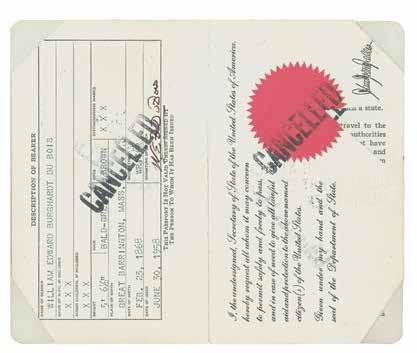 DESCRIPTION OF BEARER
NAME OF BEARER
WILLIAM EDWARD BURGHARDT DU BOIS
X X X
X X X
HEIGHT
HAIR
5' 6½"
BALD-GR
BROWN
X X X
PLACE OF BIRTH
GREAT BARRINGTON, MASS.
DATE OF BIRTH
FEB. 23, 1868
DATE OF ISSUE
JUNE 30, 1958
THIS PASSPORT IS NOT VALID UNTIL SIGNED BY
THE PERSON TO WHOM IT HAS BEEN ISSUED
CANCELLED
I, the undersigned, Secretary of State of the United States of America,
hereby request all whom it may concern
to permit safely and freely to pass,
and in case of need to give all lawful
aid and protection to the above named
citizen(s) of the United States.
Given under my hand and the
seal of the Department of State.
CANCELLED
such a state.
travel to the
authorities
not have
and